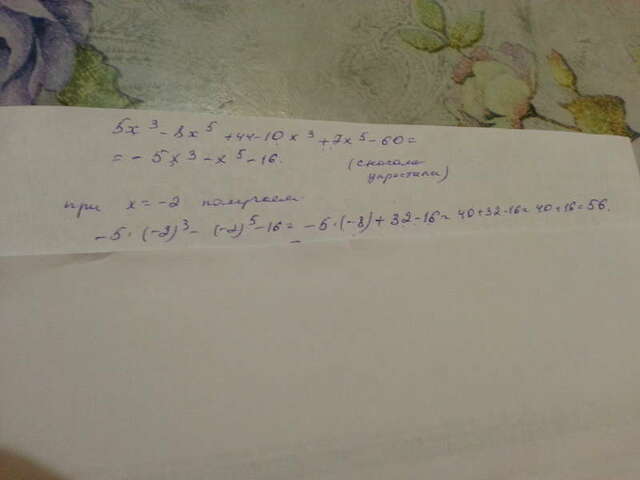 5x³ - 8x⁵ + 44 - 10x³ + 7x⁵ - 60 =
= - 5x³ - x⁵ - 16. (сначала упростила)
при x = -2 получаем
-5 · (-2)³ - (-2)⁵ - 16 = -5 · (-8) + 32 - 16 = 40 + 32 - 16 = 40 + 16 = 56.